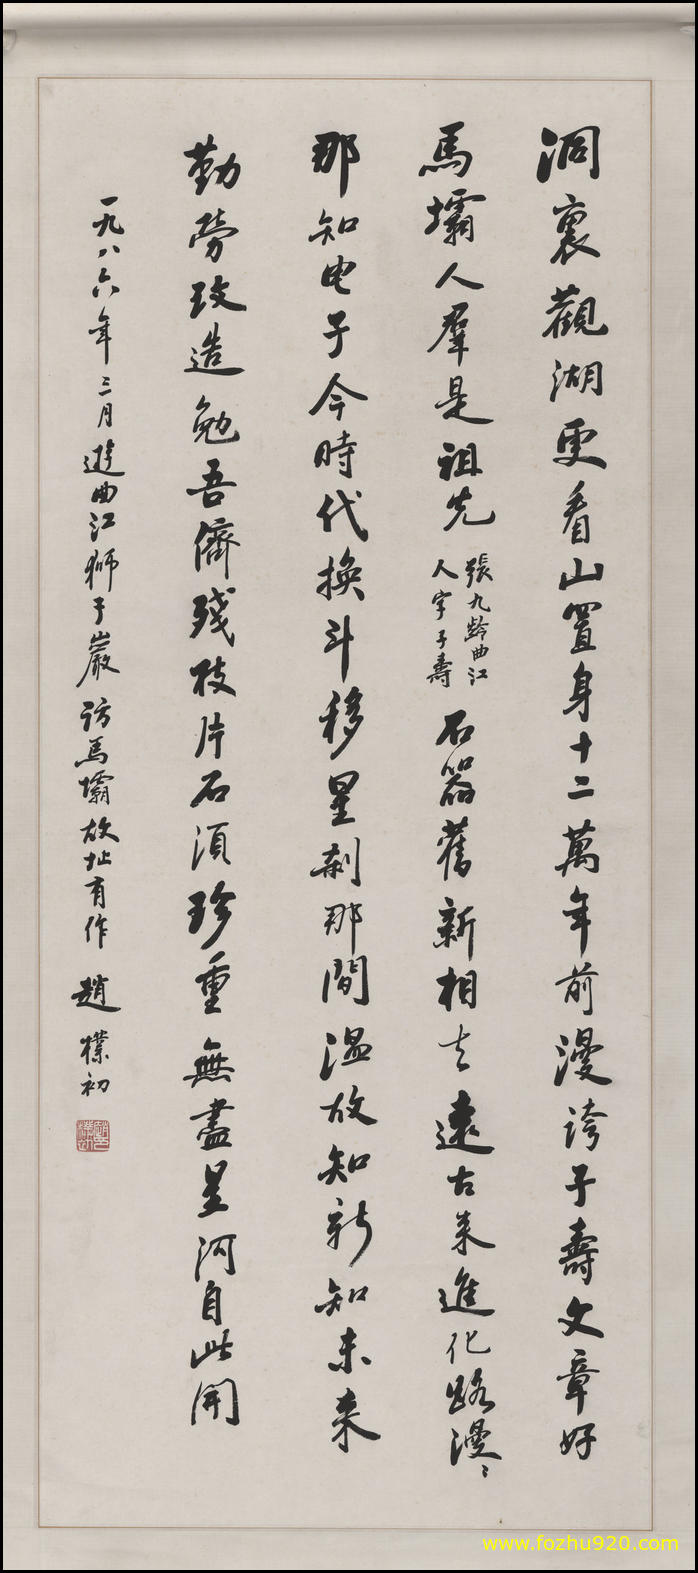 洞裏觀湖更看山置身十二萬年前漫誇子壽文章好
馬壩人羣是祖先
張九龄曲江
人字子壽
石器舊新相去遠古来進化路漫〻
那知电子今時代換斗移星剎那間温故知新知未来
勤勞改造勉吾儕残枝片石須珍重無盡星河自此開
一九八六年三月遊曲江狮子巖訪馬壩故址有作 趙樸初
趙樸初
www.fozhu920.com